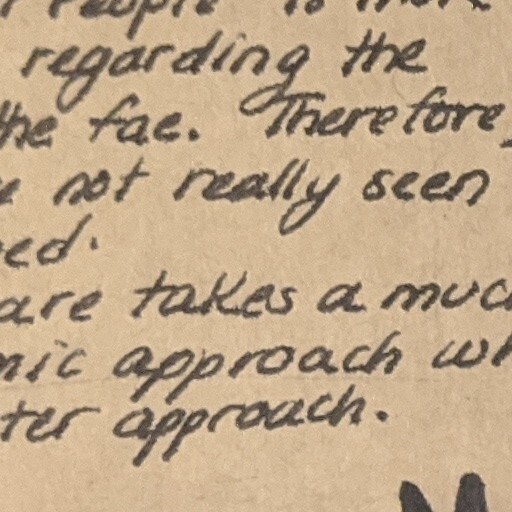 People is more
regarding the
the fae. Therefore,
not really seen
ed.
are takes a much
nic approach wh
ter approach.